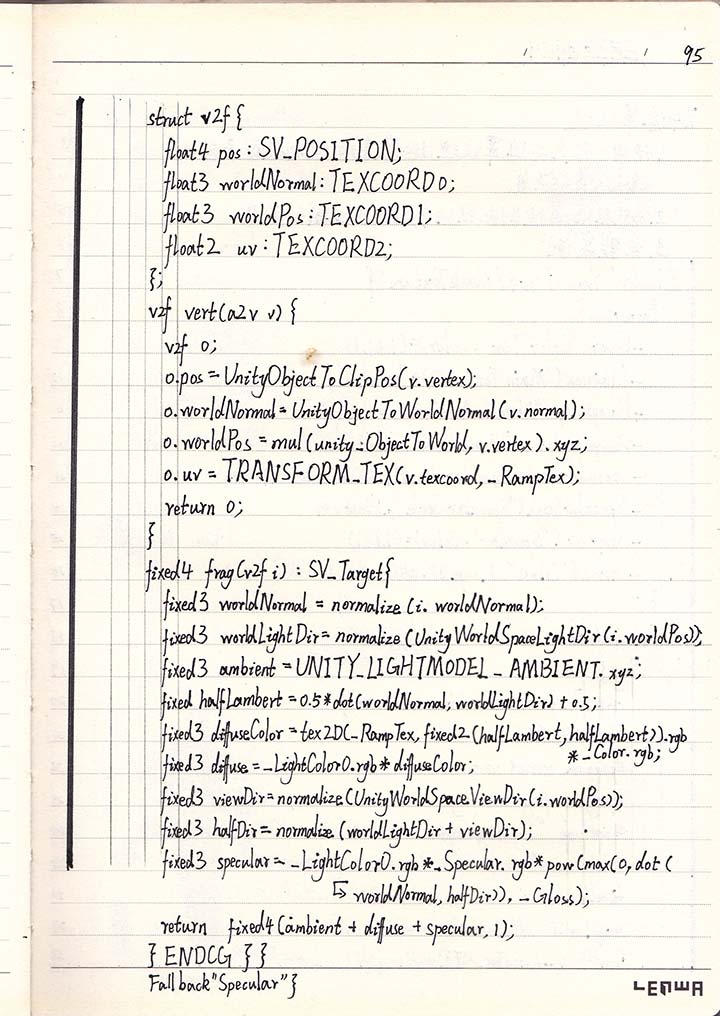 95
struct v2f {
float4 pos : SV_POSITION;
float3 worldNormal : TEXCOORD0;
float3 worldPos : TEXCOORD1;
float2 uv : TEXCOORD2;
};
v2f vert(a2v v) {
v2f o;
o.pos = UnityObjectToClipPos(v.vertex);
o.worldNormal = UnityObjectToWorldNormal(v.normal);
o.worldPos = mul(unity_ObjectToWorld, v.vertex).xyz;
o.uv = TRANSFORM_TEX(v.texcoord, _RampTex);
return o;
}
fixed4 frag(v2f i) : SV_Target{
fixed3 worldNormal = normalize(i.worldNormal);
fixed3 worldLightDir = normalize(UnityWorldSpaceLightDir(i.worldPos));
fixed3 ambient = UNITY_LIGHTMODEL_AMBIENT.xyz;
fixed halfLambert = 0.5*dot(worldNormal, worldLightDir) + 0.5;
fixed3 diffuseColor = tex2D(_RampTex, fixed2(halfLambert, halfLambert)).rgb
* _Color.rgb;
fixed3 diffuse = _LightColor0.rgb * diffuseColor;
fixed3 viewDir = normalize(UnityWorldSpaceViewDir(i.worldPos));
fixed3 halfDir = normalize(worldLightDir + viewDir);
fixed3 specular = _LightColor0.rgb * _Specular.rgb * pow(max(0, dot(
worldNormal, halfDir)), _Gloss);
return fixed4(ambient + diffuse + specular, 1);
} ENDCG } }
Fallback "Specular" }
LENWA